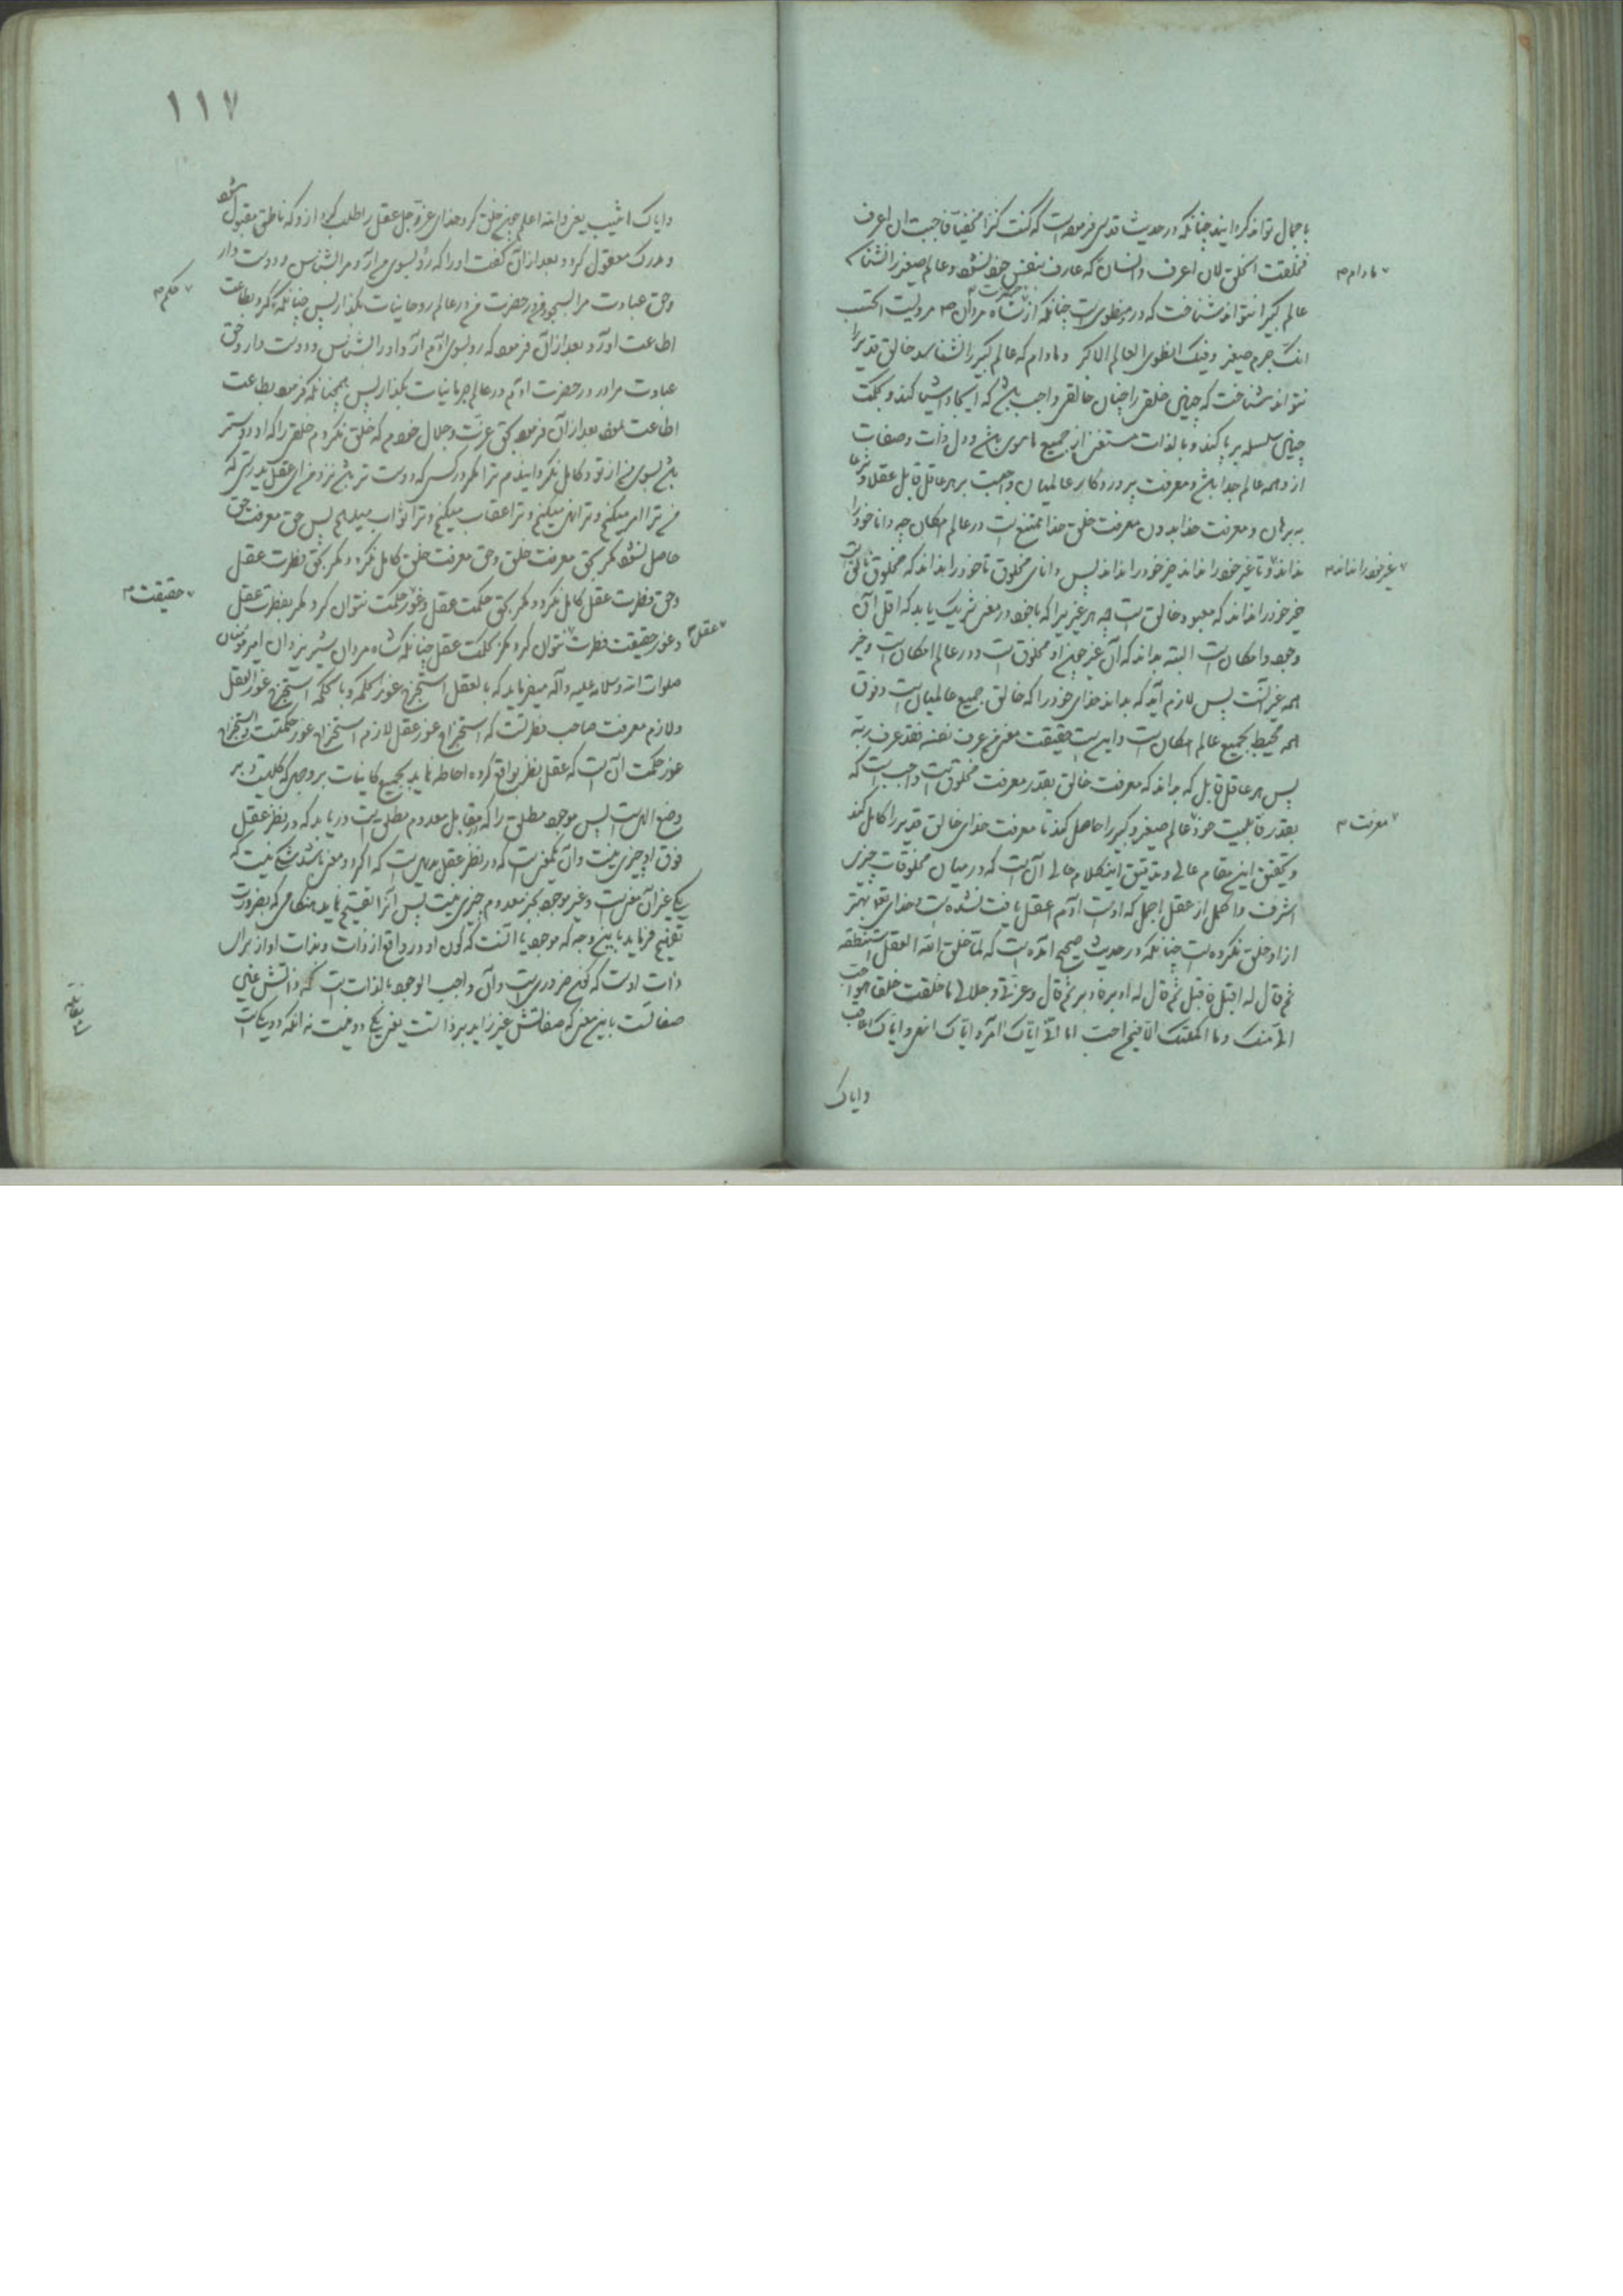 باجمال تواند گردانید چنانکه در حدیث قدسی فرموده است که کنت کنزا مخفیا فاحببت ان اعرف
فخلقت الخلق لان اعرف و انسان که عارف بنفس خود نشود و عالم صغیر را نشناسد
مادام
عالم کبیر را نتواند شناخت که در او منطوی است چنانکه از حضرت شاه مردان مرویست اتحسب
انک جرم صغیر و فیک انطوی العالم الاکبر و مادام که عالم کبیر را نشناسد خالق قدیر را
نتواند شناخت که چنین خلقی را چنان خالقی واجب باشد که ایجاد اشیا کند و بحکمت
چنین سلسله برپا کند و بالذات مستغنی از جمیع ماسوی باشد و در ذات و صفات
از همه عالم جدا باشد و معرفت پروردگار عالمیان واجبست بر هر عاقل قابل عقلا و شرعا
به برهان و معرفت خدا بدون معرفت خلق خدا ممتنع است در عالم امکان چه دانا خود را
نداند و تا غیر خود را نداند خیر خود را نداند پس دانای مخلوق تا خود را نداند که مخلوق خالق است
غیر خود را نداند
خیر خود را نداند که معبود خالق است چه هر غیری را که با خود در معنی شریک یابد که اقل آن
وجود و امکان است البته بداند که آن غیر چون او مخلوق است و در عالم امکان است و خیر
همه غیر آنست پس لازم آید که بداند خدای خود را که خالق جمیع عالمیان است و فوق
همه محیط بجمیع عالم امکان است و این است حقیقت معنی من عرف نفسه فقد عرف ربه
پس هر عاقل قابل که بداند که معرفت خالق بقدر معرفت مخلوق است واجب است که
بقدر قابلیت خود عالم صغیر و کبیر را حاصل کند تا معرفت خدای خالق قدیر را کامل کند
معرفت
و تحقیق این مقام عالی و تدقیق این کلام حالی آن است که در میان مخلوقات چیزی
اشرف و اکمل از عقل اجمل که اوست آدم العقل یافت نشده است و خدای تعالی بهتر
از او خلق نکرده است چنانکه در حدیث صحیح آمده است که لما خلق الله العقل استنطقه
ثم قال له اقبل فاقبل ثم قال له ادبر فادبر ثم قال و عزتی و جلالی ما خلقت خلقا هو احب
الی منک و لا اکملتک الا فیمن احب اما انی ایاک آمر و ایاک انهی و ایاک اعاقب
وایاک
۱۱۷
وایاک اثیب یعنی والله اعلم چون خلق کرد خدای عزوجل عقل را طلب کرد از او که ناطق مقبول شود
و مدرک معقول گردد بعد از آن گفت او را که رو بسوی من آر و مرا بشناس و دوست دار
و حق عبادت مرا بسجود من در حضرت من در عالم روحانیات بگذار پس چنانکه کرد بطاعت
حکم
اطاعت آورد بعد از آن فرمود که رو بسوی آدم آر و او را بشناس و دوست دار و حق
عبادت مرا در حضرت آدم در عالم جرمانیات بگذار پس همچنانکه فرمود بطاعت
اطاعت نمود بعد از آن فرمود بحق عزت و جلال خودم که خلق نکردم خلقی را که او دوستر
باشد بسوی من از تو و کامل نگردانیدم ترا مگر در کسی که دوست تر باشد نزد من ای عقل بدرستی که
من ترا امر میکنم و ترا نهی میکنم و ترا عقاب میکنم و ترا ثواب میدهم پس حق معرفت حق
حاصل نشود مگر بحق معرفت خلق و حق معرفت خلق کامل نگردد مگر بحق فطرت عقل
و حق فطرت عقل کامل نگردد مگر بحق حکمت عقل و غور حکمت نتوان کرد مگر بفطرت عقل
حقیقت
و غور حقیقت فطرت نتوان کرد مگر بحکمت عقل چنانکه شاه مردان شیر یزدان امیر مؤمنان
عقل
صلوات الله و سلامه علیه و آله میفرماید که بالعقل استخرج غور الحکمة و بالحکمة استخرج غور العقل
و لازم معرفت صاحب فطرتست که استخراج غور عقل لازم استخراج غور حکمتست و استخراج
غور حکمت آن است که عقل نظر بواقع کرده احاطه نماید بجمیع کاینات بر وجهی که کلیت و بر
وضع الهی است پس موجود مطلق را که مقابل معدوم مطلق است دریابد که در نظر عقل
فوق او چیزی نیست و آن یکمعنیست که در نظر عقل بدیهی است که اگر دو معنی باشد شکی نیست که
یکی غیر آن معنیست و غیر موجود بجز معدوم چیزی نیست پس آنرا تقسیم نماید هنگامی که بضرورت
تقسیم فرماید باین وجه که موجود یا آنست که کون او در واقع از ذات و بذات او از برای
ذات اوست که کونش ضروریست و آن واجب الوجود بالذات است که ذاتش عین
صفاتست باین معنی که صفاتش غیر زاید بر ذاتست یعنی یکی دو نیست نه آنکه دو یکست